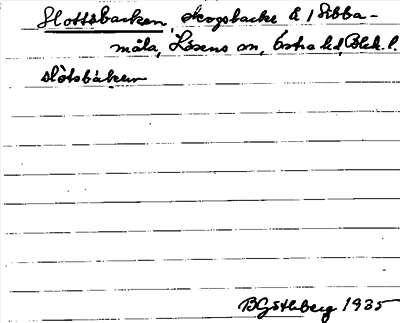 Slottsbacken, Skogsbacke å 1 Sibba-
måla, Lösens sn, Östra hd, Blek. l.
slòtsbàken
B Göthberg 1935